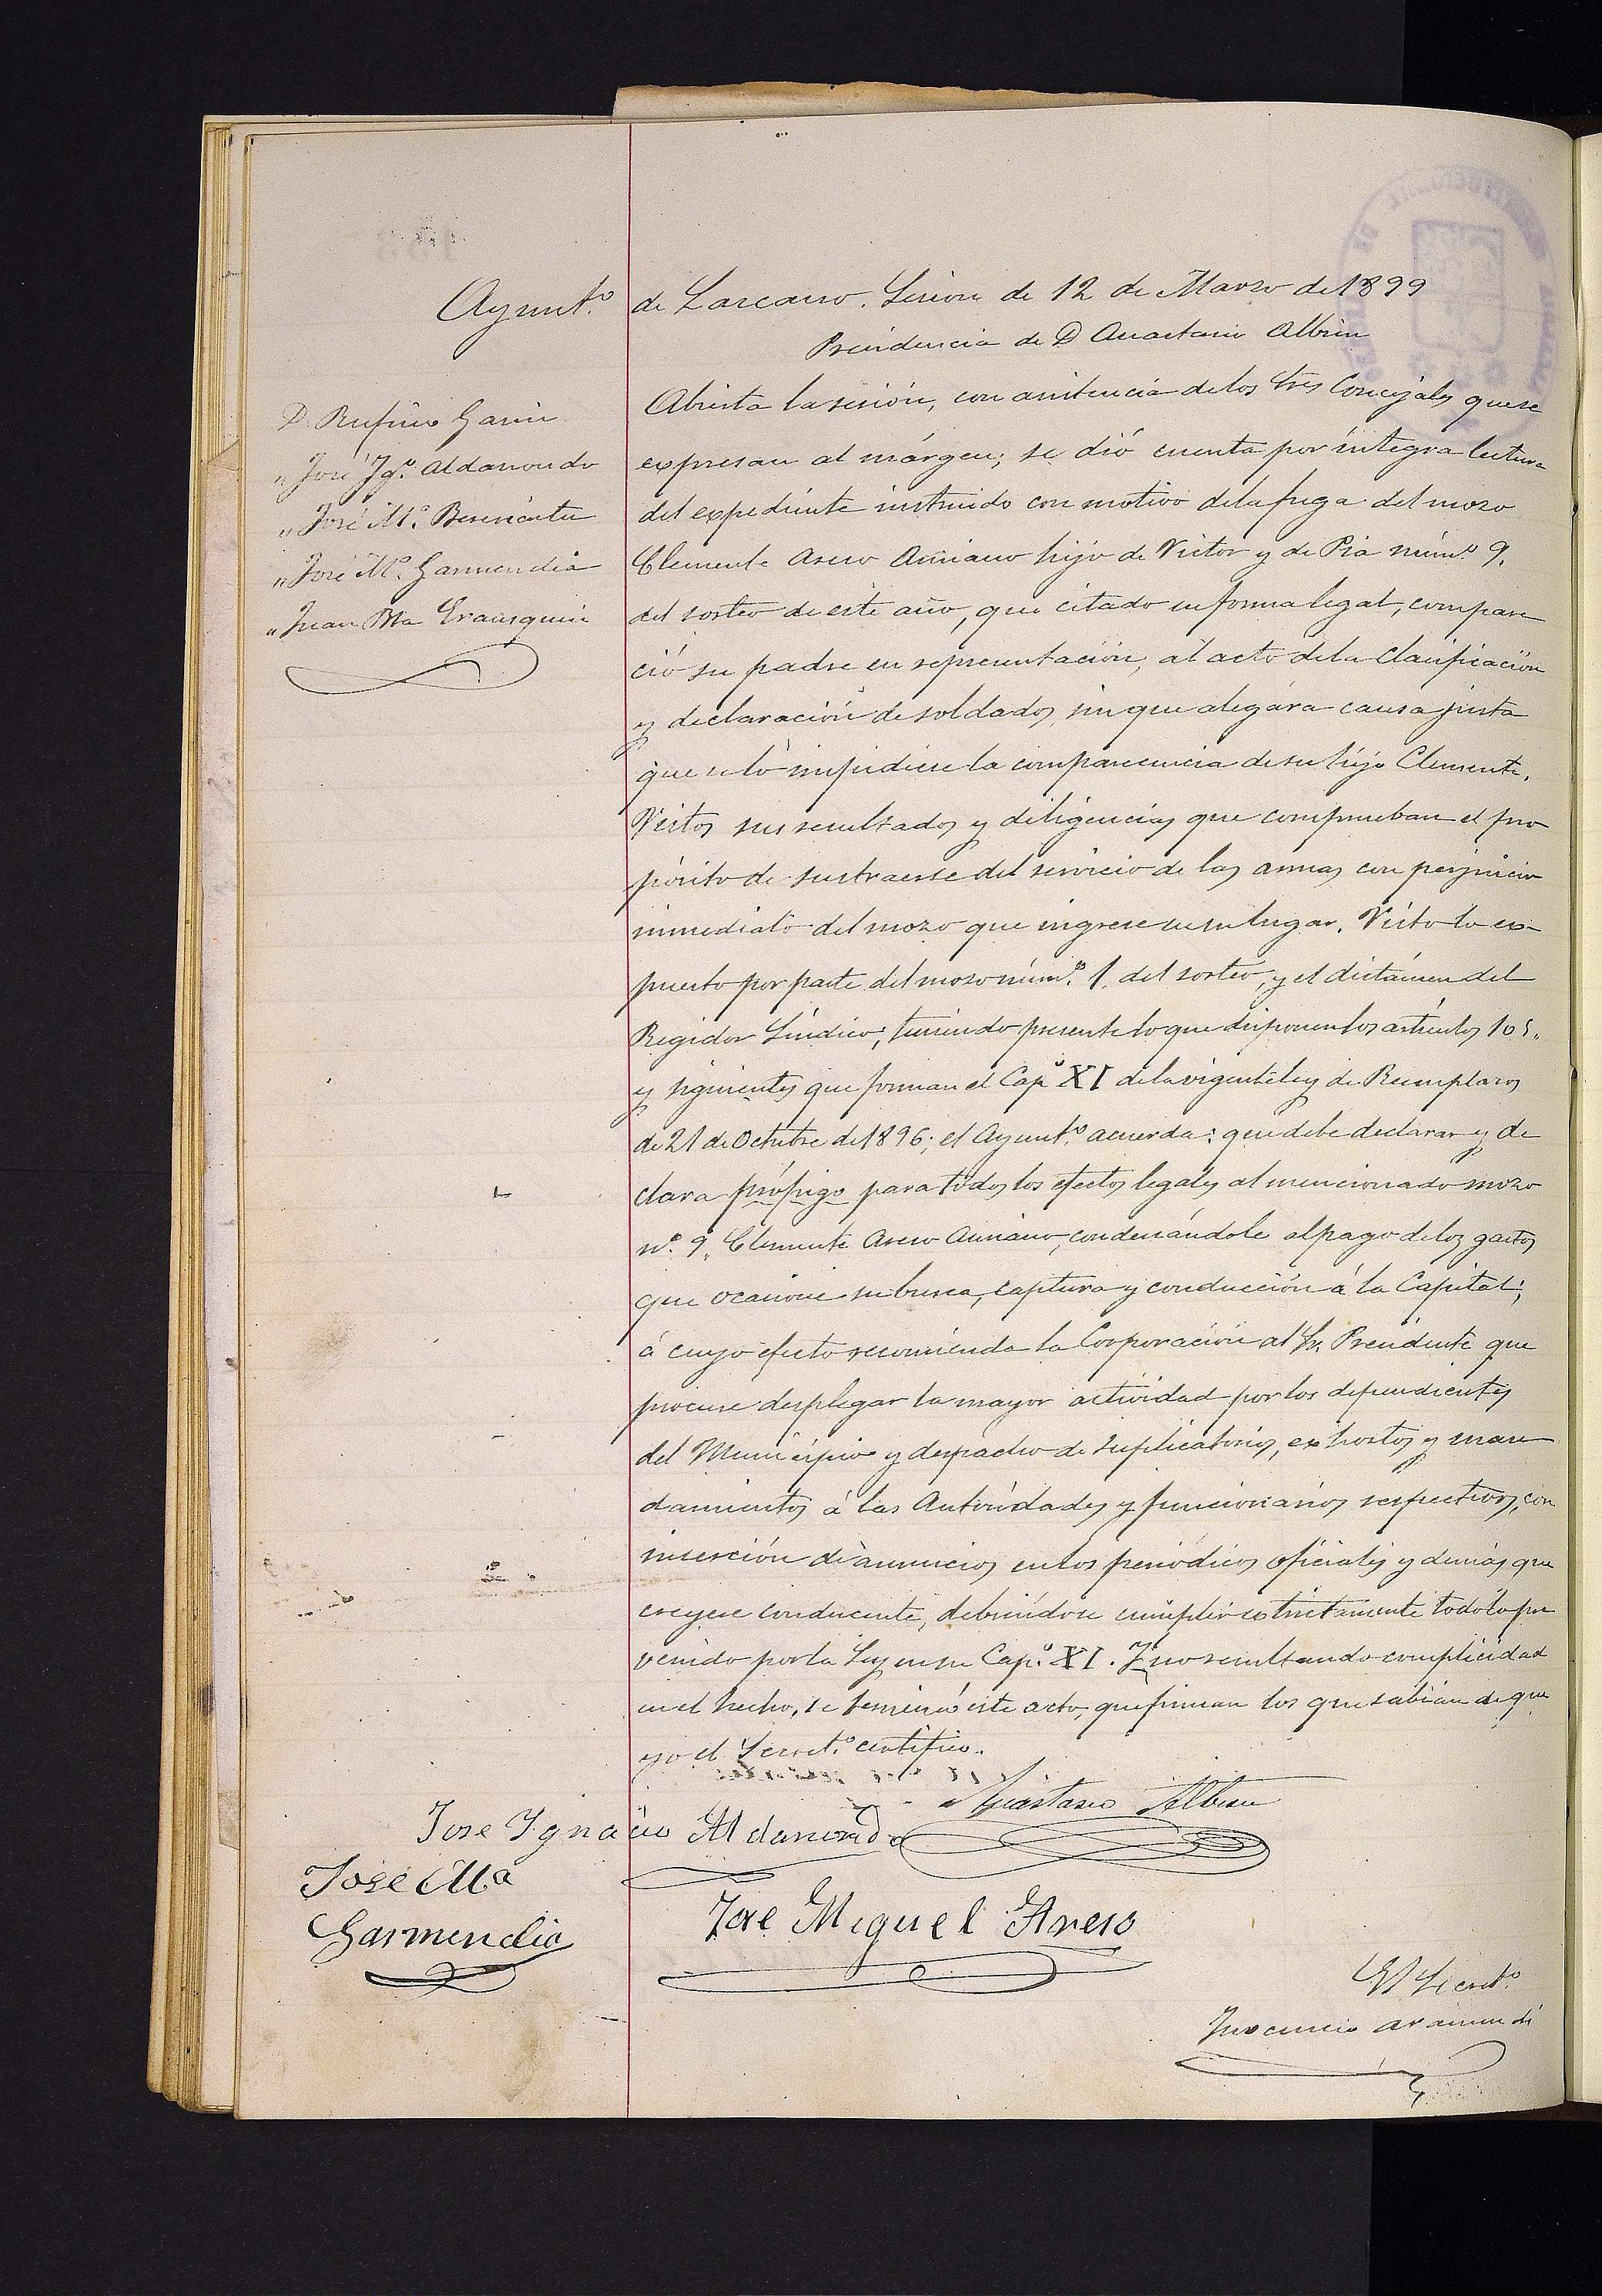 Ayunt.º de Lazcano. Sesion de 12 de Marzo de 1899
Presidencia de D Anastasio Albisu
D. Rufino Garin
" José Ig.º Aldanondo
" José M.ª
" José M.ª Garmendia
" Juan Bta Erausquin
Abierta la sesión, con asistencia de los tres Concejales que se
expresan al márgen; se dió cuenta por íntegra lectura
del expediente instruido con motivo de la fuga del mozo
Clemente Areso Amiano hijo de Victor y de Pia núm.º 9.
del sorteo de este año, que citado en forma legal, compare
ció su padre en representación, al acto de la Clasificación
y declaración de soldados, sin que alegára causa justa
que le impidiese la comparecencia de su hijo Clemente.
Vistos sus resultados y diligencias que comprueban el pro
pósito de sustraerse del servicio de las armas con perjuicio
inmediato del mozo que ingrese en su lugar. Visto lo ex-
puesto por parte del mozo núm.º 1. del sorteo, y el dictámen del
Regidor Síndico; teniendo presente lo que disponen los artículos 105.
y siguientes que forman el Cap.º XI de la vigente ley de Reemplazos
de 21 de Octubre de 1896; el Ayunt.º acuerda: que debe declarar y de
clara prófugo para todos los efectos legales al mencionado mozo
nº. 9. Clemente Areso Amiano, condenándole al pago de los gastos
que ocasione su busca, captura y conducción á la Capital;
á cuyo efecto recomienda la Corporación al Sr. Presidente que
procure desplegar la mayor actividad por los dependientes
del Municipio y despacho de suplicatorios, exhortos y man
damientos á las Autoridades y funcionarios respectivos, con
inserción de anuncios en los periódicos oficiales y demás que
creyese conducente, debiéndose cumplir estrictamente todo lo pre
venido por la Ley en su Cap.º XI. Y no resultando complicidad
en el hecho, se terminó este acto, que firman los que sabian de que
yo el Secret.º certifico.
Anastasio Albisu
Jose Ignacio Aldanondo
José Mª
Garmendia
José Miguel Areso
El Secret.º
Inocencio Araimendi